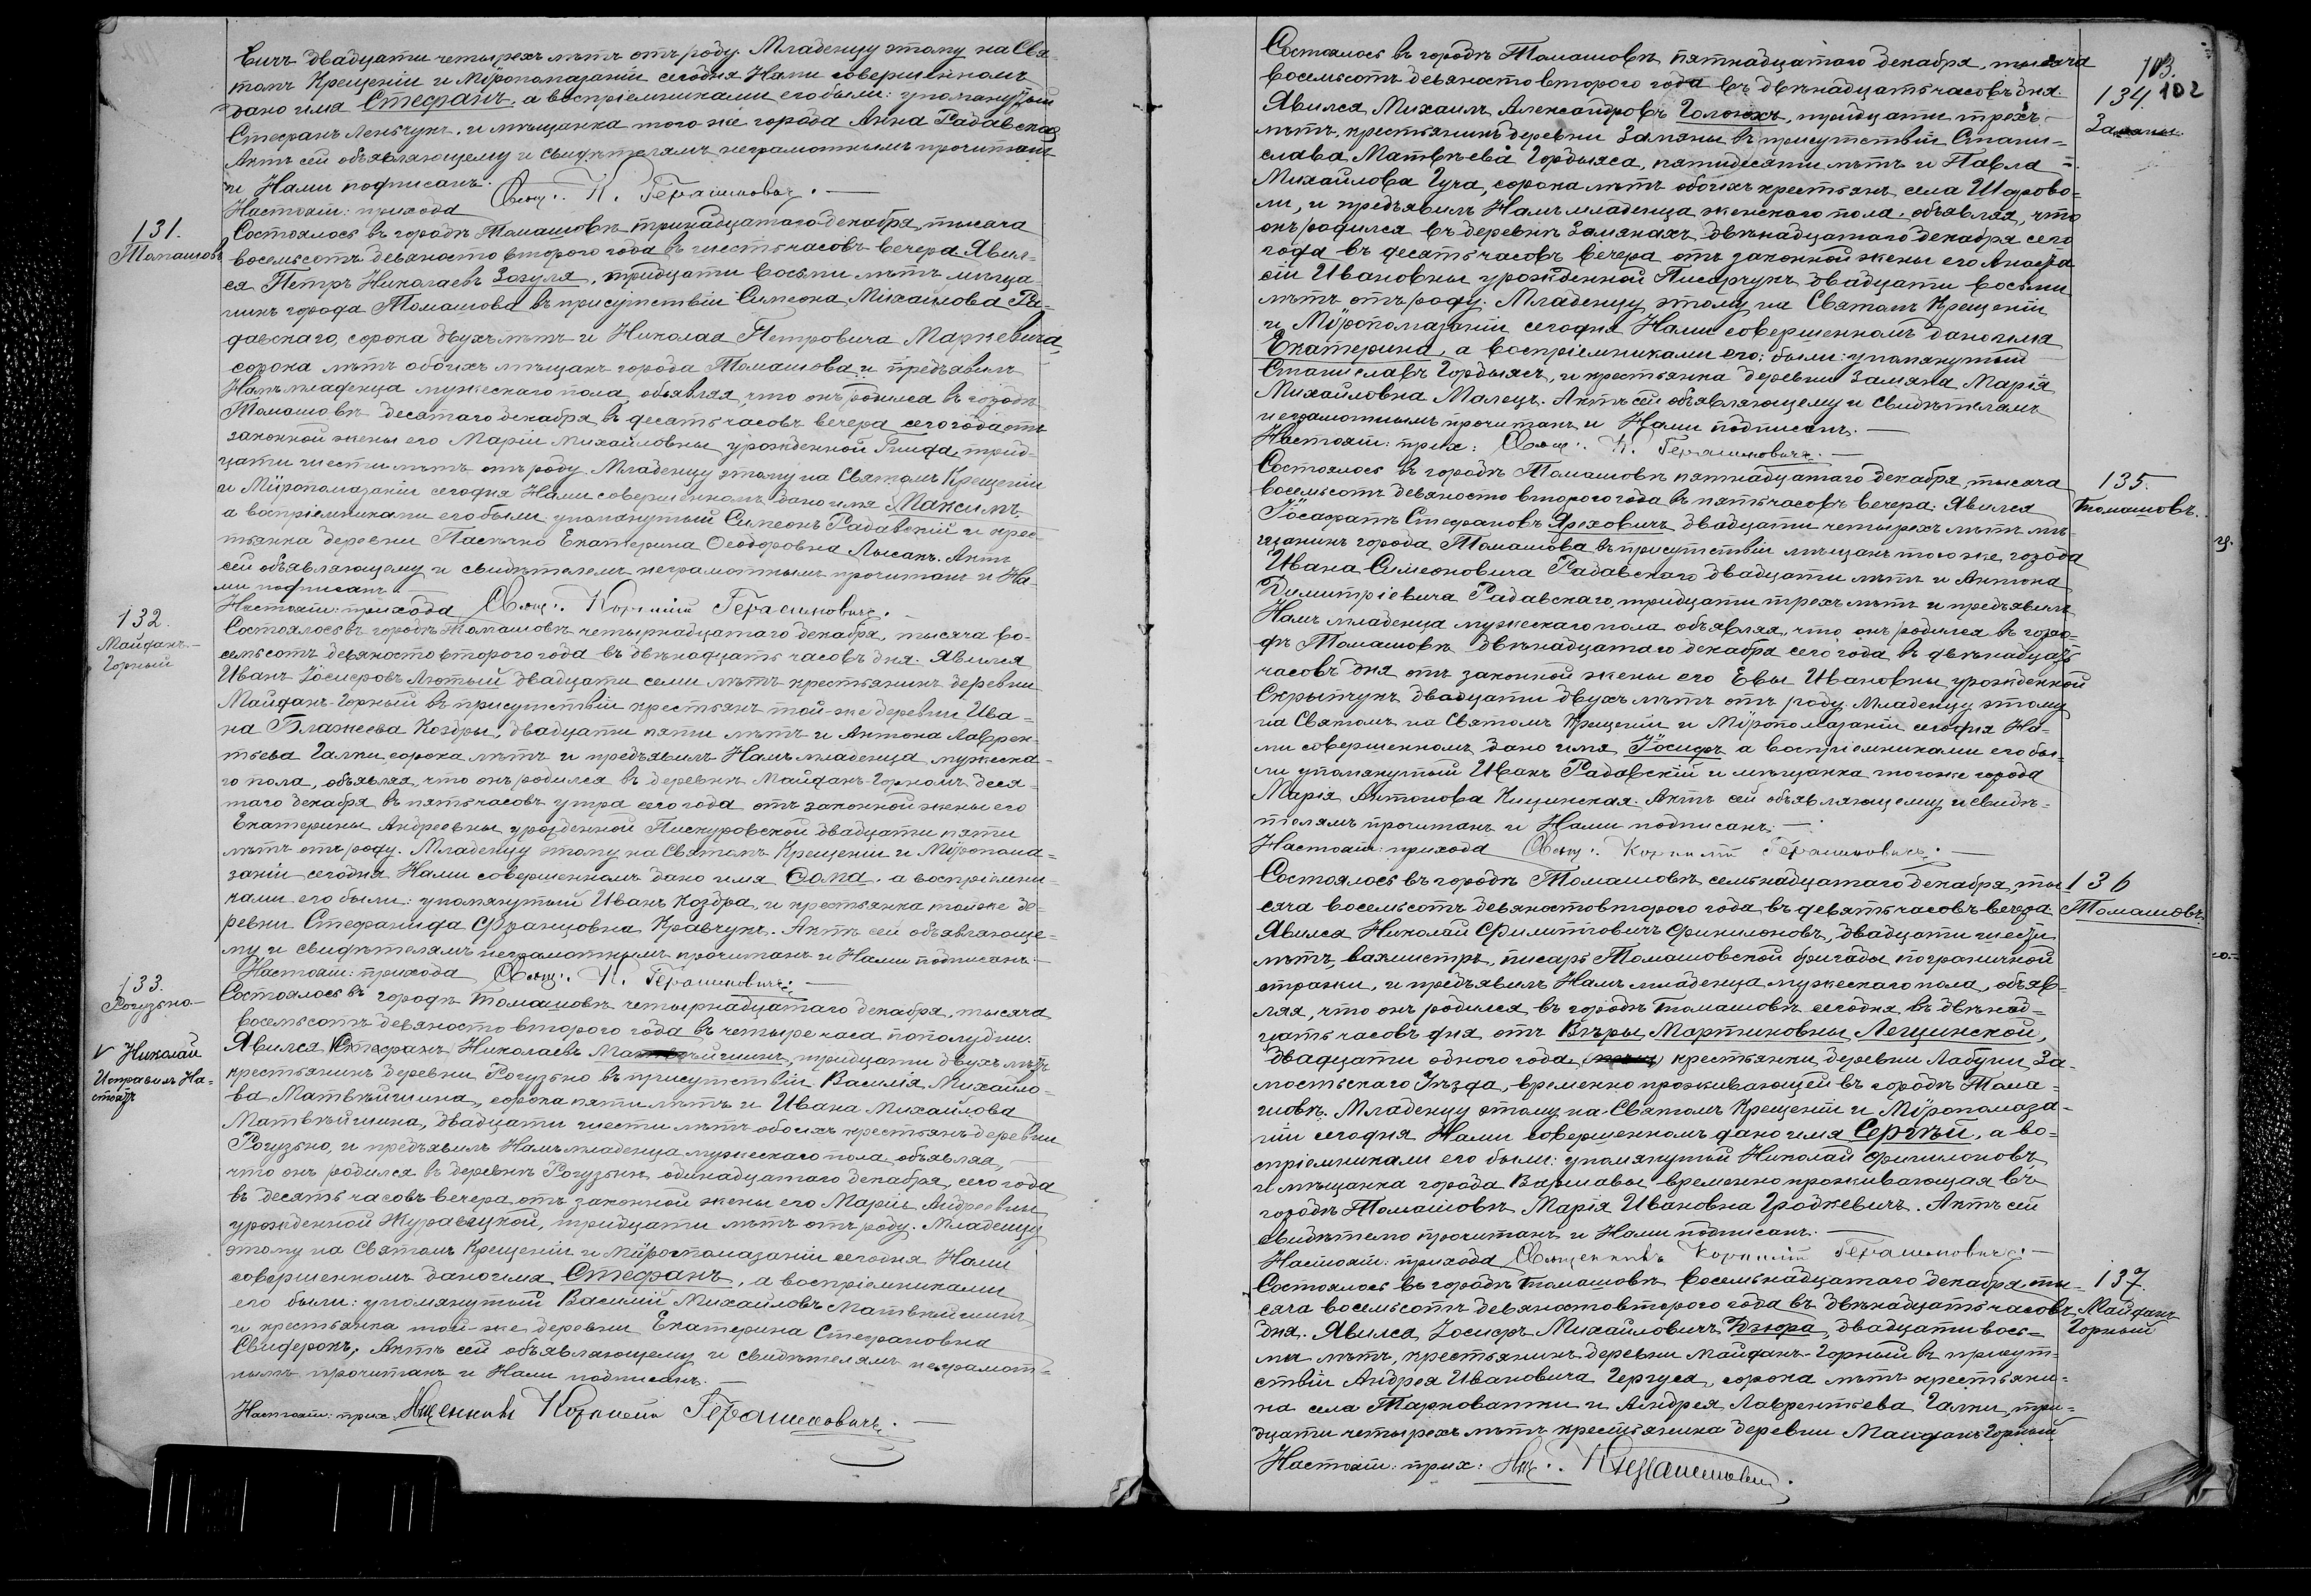 вичъ двадцати четырехъ лѣтъ отъ роду. Младенцу этому на Свя-
томъ Крещеніи и Мѵропомазаніи сегодня Нами совершенномъ
дано имя Стефанъ, а воспріемниками его были: упомянутый
Стефанъ Леньчукъ, и мѣщанка того же города Анна Радавская
Актъ сей объявляющему и свидѣтелямъ неграмотнымъ прочитанъ
и Нами подписанъ.
Настоят: прихода Свящ: К. Герасимовичъ.
131.
Томашовъ
Состоялось въ городѣ Томашовѣ тринадцатаго декабря, тысяча
восемьсотъ девяносто второго года въ шесть часовъ вечера. Явил-
ся Петръ Николаевъ Зозуля, тридцати восьми лѣтъ мѣща-
нинъ города Томашова въ присутствіи Симеона Михайлова Ра-
давскаго, сорока двухъ лѣтъ и Николая Петровича Маркевича,
сорока лѣтъ обоихъ мѣщанъ города Томашова и предъявилъ
Намъ младенца мужескаго пола, объявляя, что онъ родился въ городѣ
Томашовѣ десятаго декабря въ десять часовъ вечера сего года отъ
законной жены его Маріи Михайловны урожденной Гнида, трид-
цати шести лѣтъ отъ роду. Младенцу этому на Святомъ Крещеніи
и Мѵропомазаніи сегодня Нами совершенномъ дано имя Максимъ
а воспріемниками его были упомянутый Симеонъ Радавскій и крес-
тьянка деревни Пасѣчно Екатерина Ѳеодоровна Лысакъ. Актъ
сей объявляющему и свидѣтелемъ неграмотнымъ прочитанъ и На-
ми подписанъ.
Настоят: прихода Свящ: Корнилій Герасимовичъ.
132.
Майданъ-
Горный
Состоялось въ городѣ Томашовѣ четырнадцатаго декабря, тысяча во-
семьсотъ девяносто второго года въ двѣнадцать часовъ дня. Явился
Иванъ Іосифовъ Лютый двадцати семи лѣтъ крестьянинъ деревни
Майданъ-Горный въ присутствіи крестьянъ той-же деревни Ива-
на Блажеева Коздры, двадцати пяти лѣтъ и Антона Лаврен-
тьева Галки, сорока лѣтъ и предъявилъ Намъ младенца мужеска-
го пола, объявляя, что онъ родился въ деревнѣ Майданъ-Горномъ деся-
таго декабря въ пять часовъ утра сего года отъ законной жены его
Екатерины Андреевны урожденной Пискуровской двадцати пяти
лѣтъ отъ роду. Младенцу этому на Святомъ Крещеніи и Мѵропома-
заніи сегодня Нами совершенномъ дано имя Ѳома, а воспріемни-
ками его были: упомянутый Иванъ Коздра, и крестьянка тойже де-
ревни Стефанида Францовна Кравчукъ. Актъ сей объявляюще-
му и свидѣтелямъ неграмотнымъ прочитанъ и Нами подписанъ.
Настоят: прихода Свящ: К. Герасимовичъ.
133.
Рогузьно
Состоялось въ городѣ Томашовѣ четырнадцатаго декабря, тысяча
восемьсотъ девяносто второго года въ четыре часа пополудни.
Явился Стефанъ Николаевъ Матвѣйшинъ, тридцати двухъ лѣтъ
V Николай
Исправилъ На-
стоят
крестьянинъ деревни Рогузьно въ присутствіи Василія Михайло-
ва Матвѣйшина, сорока пяти лѣтъ и Ивана Михайлова
Матвѣйшина, двадцати шести лѣтъ обоихъ крестьянъ деревни
Рогузьно, и предъявилъ Намъ младенца мужескаго пола, объявляя,
что онъ родился въ деревнѣ Рогузьнѣ одинадцатаго декабря, сего года
въ десять часовъ вечера отъ законной жены его Маріи Андреевны
урожденной Журавецкой, тридцати лѣтъ отъ роду. Младенцу
этому на Святомъ Крещеніи и Мѵропомазаніи сегодня Нами
совершенномъ дано имя Стефанъ, а воспріемниками
его были: упомянутый Василій Михайловъ Матвѣйшинъ
и крестьянка той-же деревни Екатерина Стефановна
Свидерокъ, Актъ сей объявляющему и свидѣтелямъ неграмот-
нымъ прочитанъ и Нами подписанъ.
Настоят: прих: Священникъ Корнилій Герасимовичъ.
103.
102
134.
Состоялось въ городѣ Томашовѣ пятнадцатаго декабря, тысяча
восемьсотъ девяносто второго года въ двѣнадцать часовъ дня.
Явился Михаилъ Александровъ Голюхъ, тридцати трехъ
лѣтъ, крестьянинъ деревни Замяны въ присутствіи Стани-
слава Матвѣева Гордыяса, пятидесяти лѣтъ и Павла
Михайлова Гуча, сорока лѣтъ обоихъ крестьянъ села Шарово-
ли, и предъявилъ Намъ младенца женскаго пола, объявляя, что
онъ родился въ деревнѣ Замянахъ двѣнадцатаго декабря сего
года въ десять часовъ вечера отъ законной жены его Анаста
сіи Ивановны урожденной Писарчукъ двадцати восьми
лѣтъ отъ роду. Младенцу этому на Святомъ Крещеніи
и Мѵропомазаніи сегодня Нами совершенномъ дано имя
Екатерина, а воспріемниками его: были: упомянутый
Станиславъ Гордыясъ, и крестьянка деревни Замяна Марія
Михайловна Малецъ. Актъ сей объявляющему и свидѣтелямъ
неграмотнымъ прочитанъ и Нами подписанъ.
Настоят: прих: Свящ: К. Герасимовичъ.
135.
Томашовъ.
Состоялось въ городѣ Томашовѣ пятнадцатаго декабря, тысяча
восемьсотъ девяносто второго года въ пять часовъ вечера: Явился
Іосафатъ Стефановъ Яреховичъ двадцати четырехъ лѣтъ мѣ-
щанинъ города Томашова въ присутствіи мѣщанъ того же города
Ивана Симеоновича Радавскаго двадцати лѣтъ и Антона
Димитріевича Радавскаго, тридцати трехъ лѣтъ и предъявилъ
Намъ младенца мужескаго пола объявляя, что онъ родился въ горо-
дѣ Томашовѣ двѣнадцатаго декабря сего года въ двѣнадцать
часовъ дня отъ законной жены его Евы Ивановны урожденной
Скрыпчукъ двадцати двухъ лѣтъ отъ роду. Младенцу этому
на Святомъ на Святомъ Крещеніи и Мѵропомазаніи сегодня На-
ми совершенномъ дано имя Іосифъ а воспріемниками его бы-
ли упомянутый Иванъ Радавскій и мѣщанка тогоже города
Марія Антонова Кицинская. Актъ сей объявляющему и свидѣ-
телямъ прочитанъ и Нами подписанъ.
Настоят: прихода Свящ: Корнилій Герасимовичъ.
136
Томашовъ
Состоялось въ городѣ Томашовѣ семьнадцатаго декабря, ты
сяча восемьсотъ девяностовторого года въ девять часовъ вечера
Явился Николай Филиповичъ Финилоновъ, двадцати шести
лѣтъ, вахмистръ, писарь Томашовской бригады пограничной
стражи, и предъявилъ Намъ младенца мужескаго пола, объяв-
ляя, что онъ родился въ городѣ Томашовѣ сегодня въ двѣнад-
цать часовъ дня отъ Вѣры Мартиновны Лещинской,
двадцати одного года, крестьянки деревни Лабуни За-
мостьскаго Уѣзда, временно проживающей въ городѣ Тома-
шовѣ. Младенцу этому на Святомъ Крещеніи и Мѵропомаза-
ніи сегодня Нами совершенномъ дано имя Сергѣй, а во-
спріемниками его были: упомянутый Николай Финилоновъ
и мѣщанка города Варшавы временно проживающая въ
городѣ Томашовѣ Марія Ивановна Гродкевичъ. Актъ сей
свидѣтелю прочитанъ и Нами подписанъ.
Настоят: прихода Священникъ Корнилій Герасимовичъ.
137.
Майданъ
Горный
Состоялось въ городѣ Томашовѣ восемьнадцатаго декабря, ты-
сяча восемьсотъ девяностовторого года въ двѣнадцать часовъ
дня. Явился Іосифъ Михайловичъ Дзюра, двадцати вось-
ми лѣтъ, крестьянинъ деревни Майданъ-Горный въ присут-
ствіи Андрея Ивановича Гергуся, сорока лѣтъ крестьяни-
на села Тарноватки и Андрея Лаврентьева Галки, три-
дцати четырехъ лѣтъ крестьянина деревни Майданъ Горный.
Настоят: прих: Свящ: К Герасимовичъ.